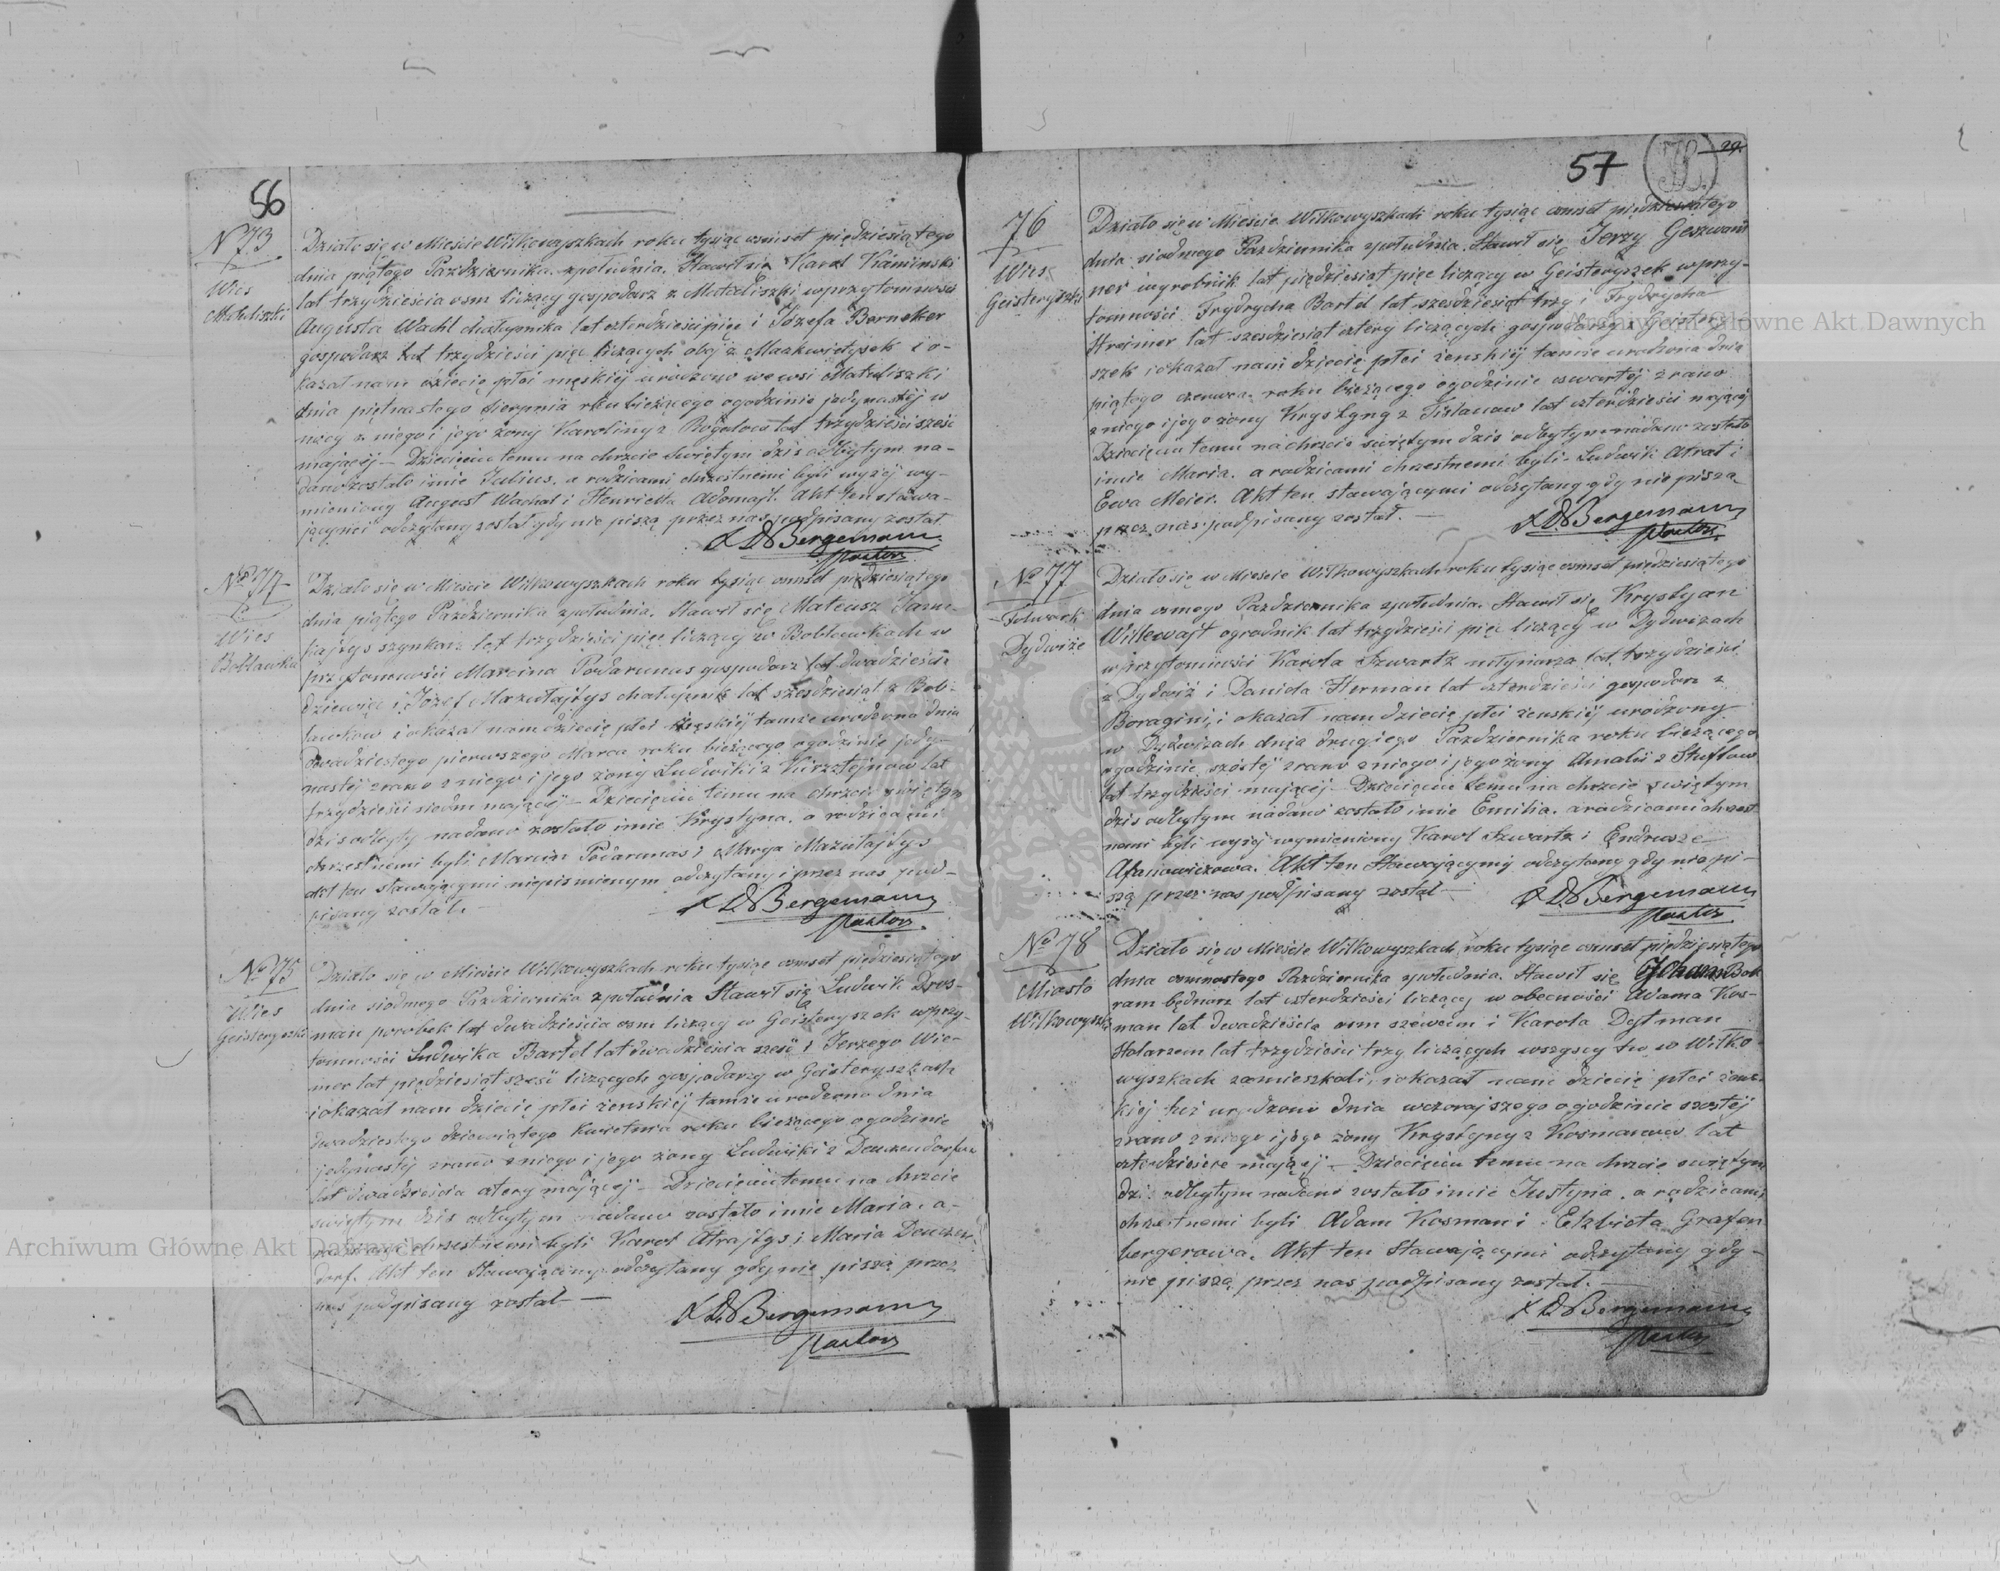 56
N 73
Wieś
Matuliszki
Działo się w Mieście Wilkowyszkach roku tysiąc ośmset piędziesiątego
dnia piątego Października zpołudnia. Stawił się Karol Kaminski
lat trzydzieścia osm liczący gospodarz z Matuliszki w przytomności
Augusta Wachl chałupnika lat czterdzieści pięć i Józefa Berneker
gospodarz lat trzydzieści pięć liczących obój z o-
kazał nam dziecię płci męskiéj urodzono we wsi Matuliszki
dnia piętnastego Sierpnia roku bieżącego ogodzinie jedynastéj w
nocy z niego i jego żony Karoliny z lat trzydzieści sześć
mającéj – Dziecięciu temu na chrzcie świętym dziś odbytym na-
dano zostało imie Julius, a rodzicami chrzestnemi byli wyżéj wy-
mieniony August Wachol i Henrietta Adomajt. Akt ten stawa-
jącymi odczytany został gdy nie piszą przez nas podpisany został
Bergemann
Pastor
No 74
Wieś
Działo się w Mieście Wilkowyszkach roku tysiąc osmset piędziesiątego
dnia piątego Października zpołudnia. Stawił się Mateusz
szynkarz lat trzydzieści pięć liczący w Boblawkach w
przytomności Marcina Podarunas gospodarz lat dwadzieścia
dziewięć i Józef chałupnik lat sześdziesiąt z Bob-
lawkow i okazał nam dziecię płci żęskiéj tamże urodzona dnia
dwadziestego pierwszego Marca roku bieżącego ogodzinie jedy-
nastéj zrana z niego i jego żony Ludwiki z lat
trzydzieści siedm mającéj – Dziecięciu temu na chrzcie świętym
dziś odbyty nadano zostało imie Krystyna, a rodzicami
chrzestnemi byli Marcin Podarunas i Marya Mazutajtys
akt ten stawającymi niepismienym odczytany i przez nas pod-
pisany został.
Bergemann
Pastor.
No 75
Wieś
Działo się w Mieście Wilkowyszkach roku tysiąc osmset piędziesiątego
dnia siódmego Października zpołudnia Stawił się Ludwik Dros-
man porobek lat dwadzieścia osm liczący w Geisteryszek w przy-
tomności Ludwika Bartel lat dwadzieścia sześć i Jerzego Wie-
mer lat piędziesiąt sześć liczących gospodarzy w Geisteryszkach
i okazał nam dziecię płci żeńskiéj tamże urodzona dnia
dwadziestego dziewiątego Kwietnia roku bieżącego ogodzinie
jedynastéj zrana z niego i jego żony Ludwiki z
lat dwadzieścia cztery mającéj – Dziecięciu temu na chrzcie
świętym dziś odbytym nadano zostało imie Maria, a-
rodzicami chrzestnemi byli Karol Atrajtys i Maria Douczen-
dorf. Akt ten Stawającymi odczytany gdy nie piszą przez
nas podpisany został –
Bergemann
Pastor
57
29.
76
Wieś
Działo się w Mieście Wilkowyszkach roku tysiąc osmset piędziesiątego
dnia siódmego Października zpołudnia. Stawił się Jerzy
wyrobnik lat piędziesiąt pięć liczący w Geisteryszek w przy-
tomności Frydrycha Bartel lat sześdziesiąt trzy i Frydrycha
Streimer lat sześdziesiąt cztery liczących gospodarzy z Geistery-
szek i okazał nam dziecię płci żeńskiéj tamże urodzona dnia
piątego czerwca roku bieżącego ogodzinie czwartéj zrana
z niego i jego żony Krystyny z lat czterdzieści mającéj
Dziecięciu temu na chrzcie świętym dziś odbytym nadano zostało
imie Maria, a rodzicami chrzestnemi byli Ludwik Atrat i
Ewa Meier. Akt ten stawającymi odczytany gdy nie piszą
przez nas podpisany został. –
Bergemann
Pastor.
No 77
Folwark
Dydwiże
Działo się w Mieście Wilkowyszkach roku tysiąc osmset piędziesiątego
dnia osmego Października zpołudnia. Stawił się Krystyan
ogrodnik lat trzydzieści pięć liczący w Dydwizach
w przytomności Karola Szwartz młynarza lat trzydzieści
z Dydwiż i Daniela Herman lat czterdzieści gospodarz z
i okazał nam dziecię płci żenskiéj urodzony
w Dydwizach dnia drugiego Października roku bieżącego
ogodzinie szóstéj zrana z niego i jego żony Amalii z
lat trzydzieści mającéj – Dziecięciu temu na chrzcie świętym
dziś odbytym nadano zostało imie Emilia, a rodzicami chrzest-
nemi byli wyżéj wymieniony Karol Szwartz i Endrusze
Afanowiczowa. Akt ten Stawającymi odczytany gdy nie pi-
szą przez nas podpisany został –
Bergemann
Pastor.
No 78
Miasto
Wilkowyszki
Działo się w Mieście Wilkowyszkach roku tysiąc osmset piędziesiątego
dnia osmnastego Października zpołudnia. Stawił się Johan Bok
ram będnarz lat czterdzieści liczący w obecności Adama Kos-
man lat dwadzieścia osm szewcem i Karola Dytman
Stolarzem lat trzydzieści trzy liczących wszyscy tu w Wilko-
wyszkach zamieszkali, i okazał nam dziecię płci żeńs-
kiéj tuż urodzono dnia wczorajszego ogodzinie szostéj
zrano z niego i jego żony Krystyny z Kosmanow lat
czterdzieście mającéj – Dziecięciu temu na chrzcie świętym
dziś odbytym nadano zostało imie Justyna, a rodzicami
chrzestnemi byli Adam Kosman i Elzbieta Grafen
bergerowa. Akt ten Stawającymi odczytany gdy
nie piszą przez nas podpisany został. –
Bergemann
Pastor
Archiwum Główne Akt Dawnych
Archiwum Główne Akt Dawnych